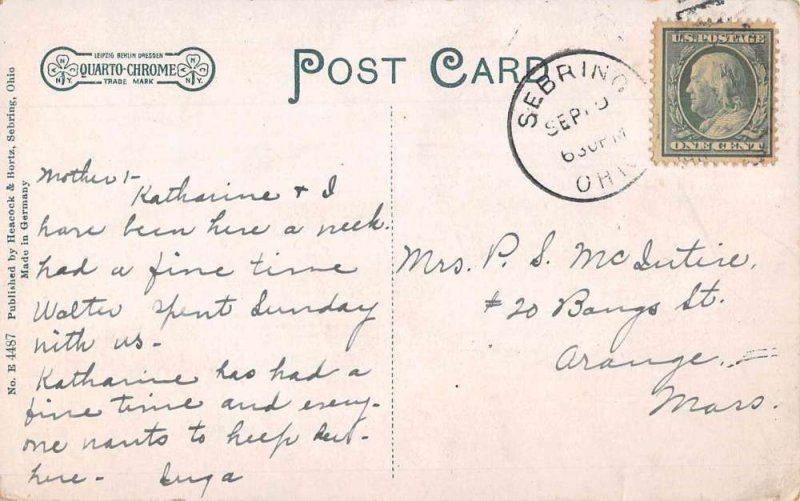 LEIPZIG BERLIN DRESSEN
QUARTO-CHROME
TRADE MARK
N N Y
N N Y
POST CARD
SEBRING
SEP
630PM
OHIO
U.S. POSTAGE
ONE CENT
No. E 4487 Published by Heacock & Hortz, Sebring, Ohio
Made in Germany
Mother:-
Katharine & I
have been here a week.
had a fine time
Walter spent Sunday
with us-
Katharine has had a
fine time and every-
one wants to keep her-
here-
Mrs. P. S. McIntire,
#20 Bangs St.
Orange,
Mass.